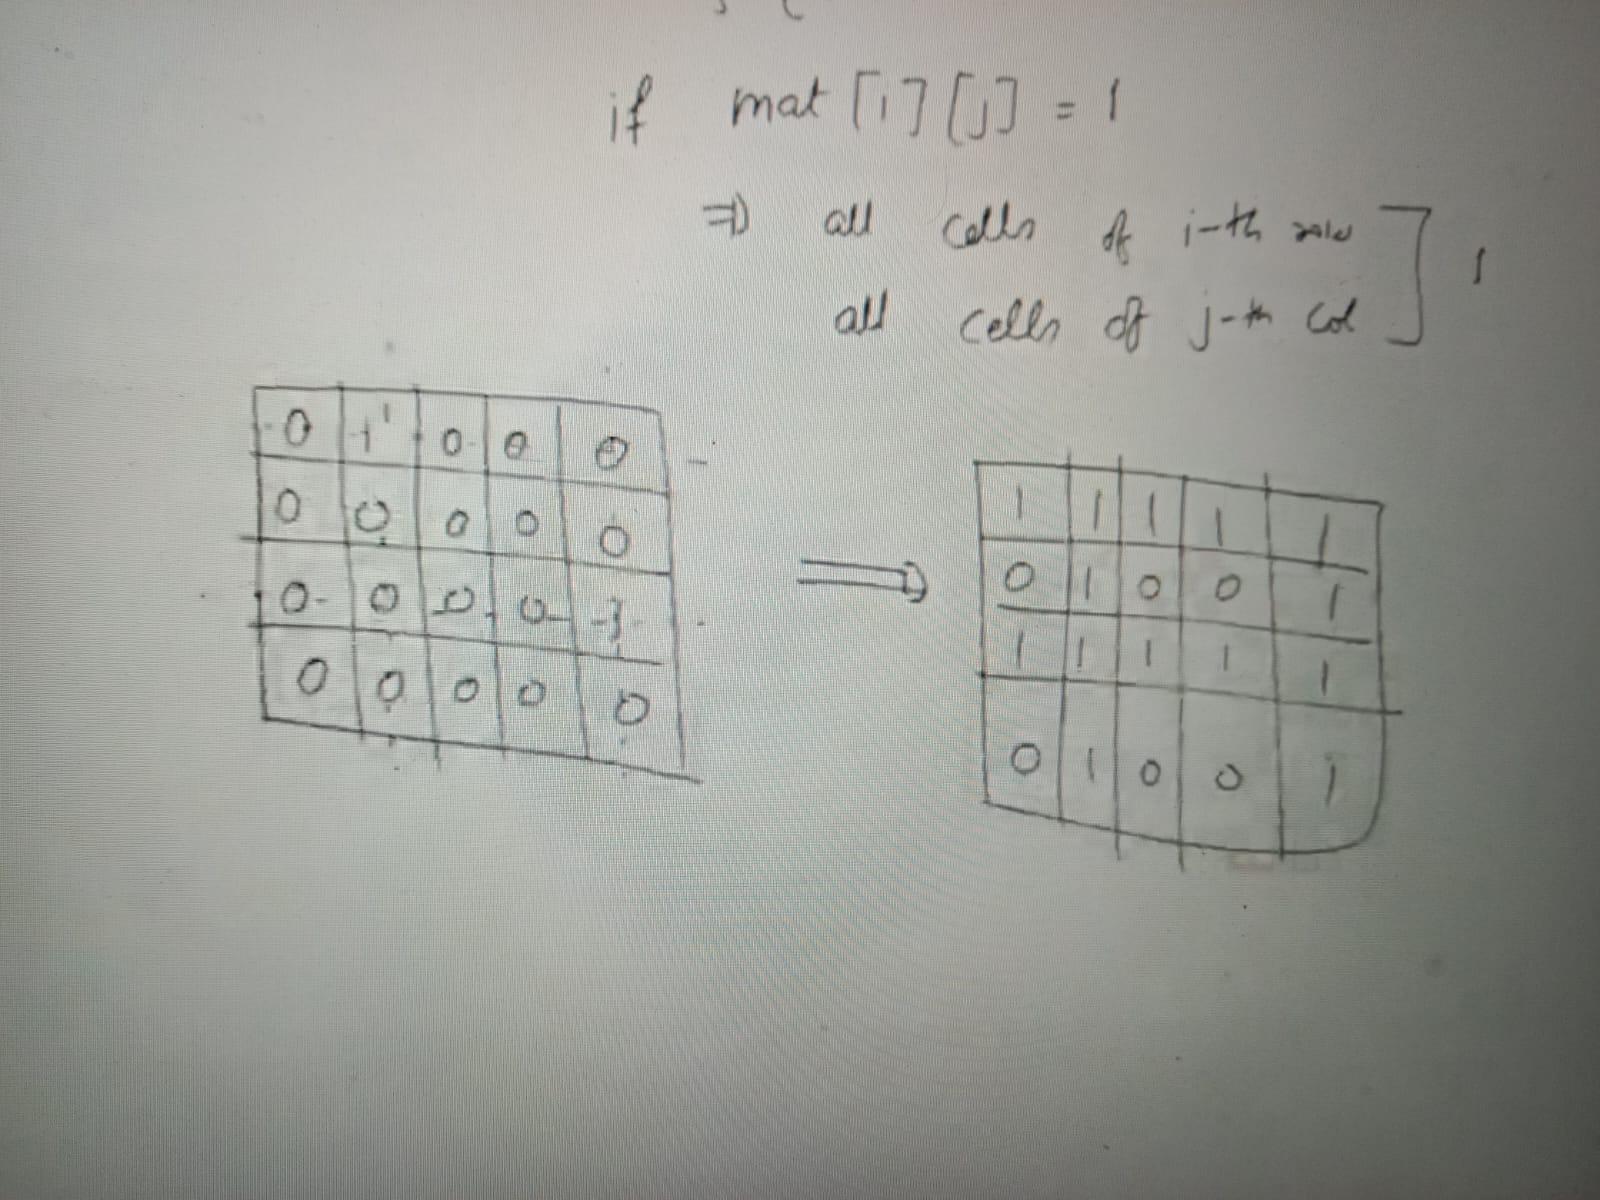 if mat [i] [j] = 1
⇒ all cells of i-th row
all cells of j-th col ] 1
0 1 0 0 0
0 0 0 0 0
0 0 0 0 1
0 0 0 0 0
⇒
1 1 1 1 1
0 1 0 0 1
1 1 1 1 1
0 1 0 0 1